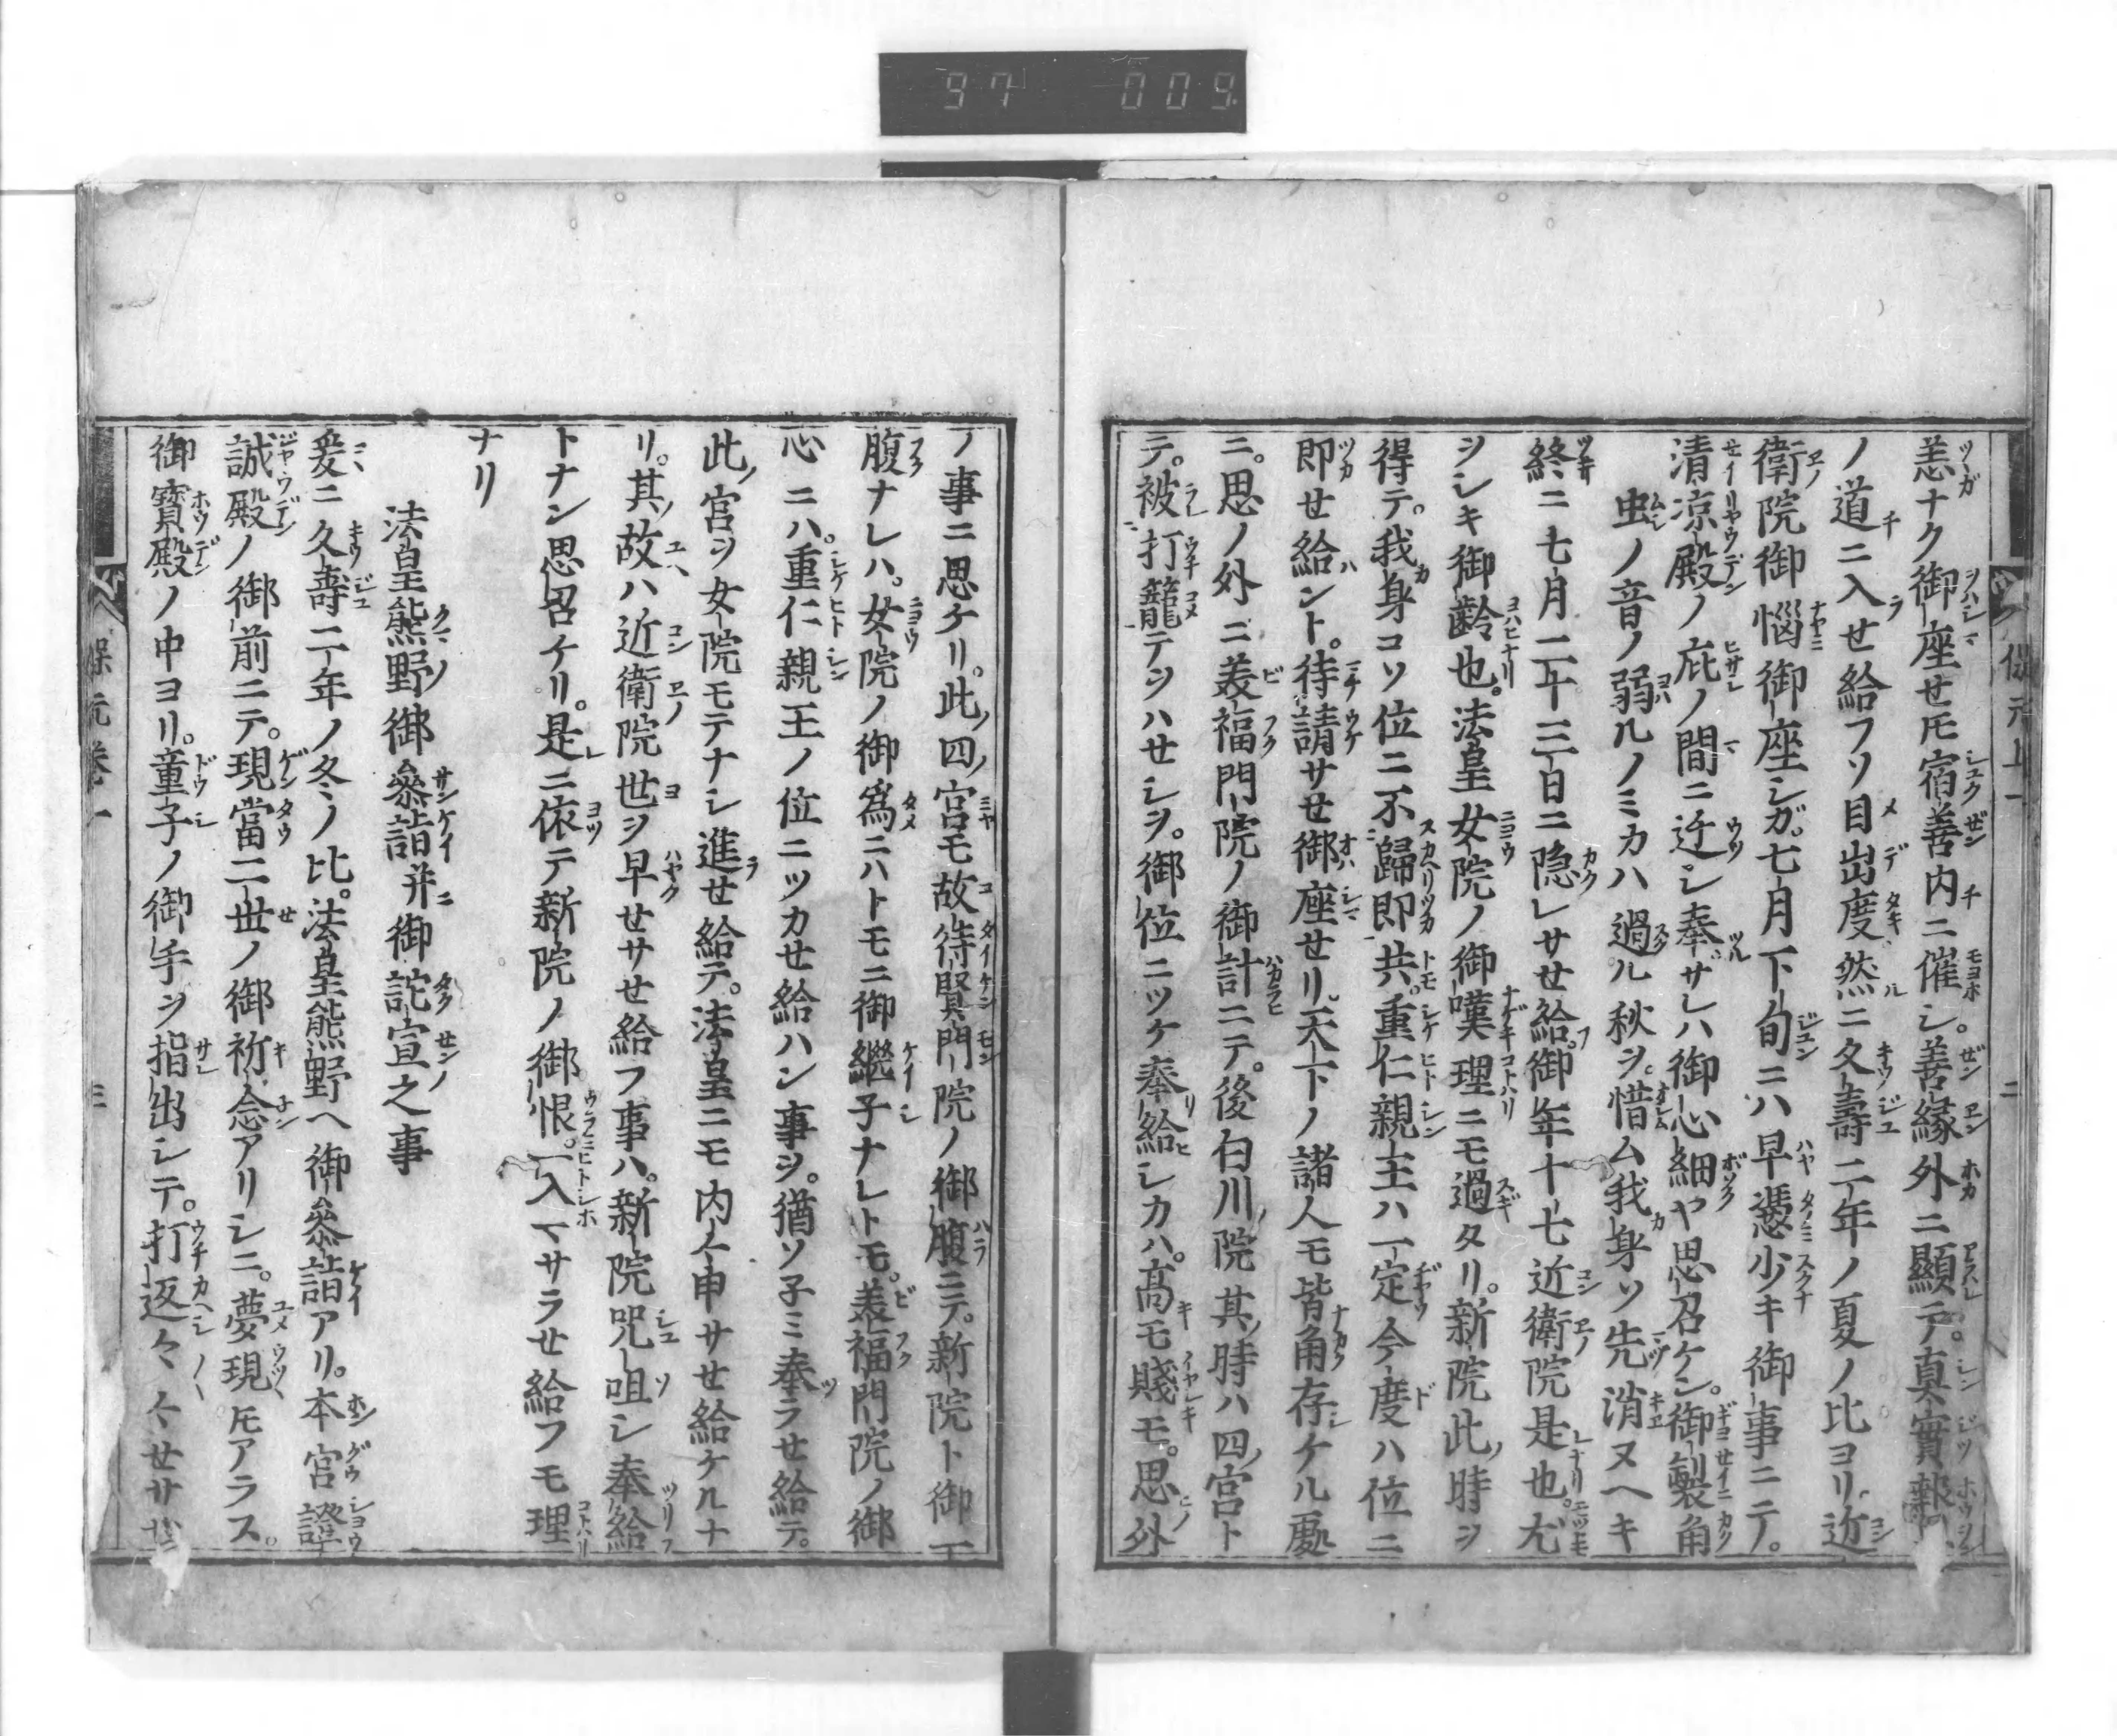 97 009
恙ナク御座セ𪜈宿善内ニ催シ。善縁外ニ顯テ。真實報
ノ道ニ入セ給フソ目出度然ニ久壽二年ノ夏ノ比ヨリ近
衛院御惱御座シガ。七月下旬ニハ早憑少キ御事ニテ。
清凉殿ノ庇ノ間ニ迁シ奉サレハ御心細ヤ思召ケン。御製角
虫ノ音ノ弱ルノミカハ過ル秋ヲ。惜ム我身ソ先消ヌヘキ
終ニ七月二十三日ニ隠レサセ給。御年十七近衛院是也。尤
ヲシキ御齡也。法皇女院ノ御嘆理ニモ過タリ。新院此時ヲ
得テ。我身コソ位ニ不歸即共。重仁親王ハ一定今度ハ位ニ
即セ給ハント。待請サセ御座セリ。天下ノ諸人モ皆角存ケル處
ニ。思ノ外ニ美福門院ノ御計ニテ。後白川院其時ハ四宮ト
テ。被打籠テヲハセシヲ。御位ニツケ奉給シカハ。高モ賤モ。思外
保元上一 二
ノ事ニ思ケリ。此四宮モ故待賢門院ノ御腹ニテ。新院ト御一
腹ナレハ。女院ノ御爲ニハトモニ御繼子ナレトモ。美福門院ノ御
心ニハ。重仁親王ノ位ニツカセ給ハン事ヲ。猶ソ子ミ奉ラセ給テ。
此宮ヲ女院モテナシ進セ給テ。法皇ニモ内々申サセ給ケルナ
リ。其故ハ近衛院世ヲ早セサセ給フ事ハ。新院咒咀シ奉給
トナン思召ケリ。是ニ依テ新院ノ御恨。一入マサラセ給フモ理
ナリ
法皇熊野御參詣并御託宣之事
爰ニ久壽二年ノ冬ノ比。法皇熊野ヘ御參詣アリ。本宮證
誠殿ノ御前ニテ。現當二世ノ御祈念アリシニ。夢現𪜈アラス。
御寳殿ノ中ヨリ。童子ノ御手ヲ指出シテ。打返々々セサセ
保元巻一 三